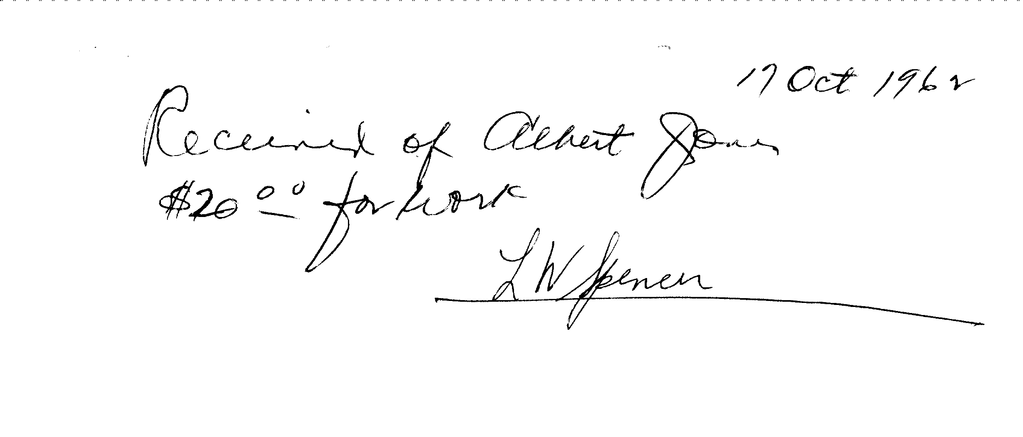 17 Oct 1962
Received of Albert Jones
$20 00 for work
L W Spencer